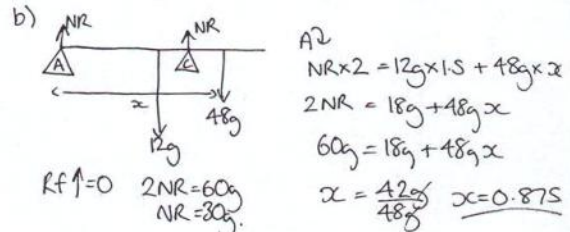 b)
NR NR
A C
x
48g
12g
Rf↑=0 2NR=60g
NR=30g.
A↷
NR×2 = 12g×1.5 + 48g×x
2NR = 18g+48gx
60g=18g+48gx
x = 42g/48g x=0.875